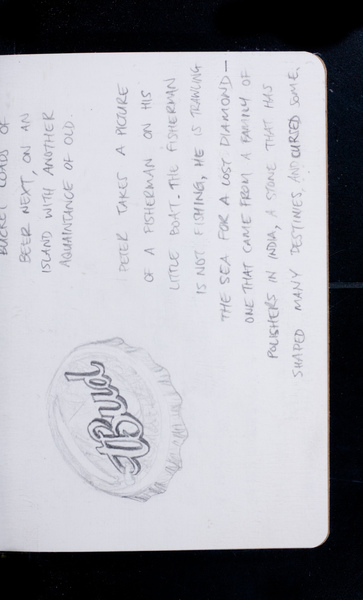 BUCKET LOADS OF
BEER NEXT, ON AN
ISLAND WITH ANOTHER
AQUAINTANCE OF OLD.
PETER TAKES A PICTURE
OF A FISHERMAN ON HIS
LITTLE BOAT. THE FISHERMAN
IS NOT FISHING, HE IS TRAWLING
THE SEA FOR A LOST DIAMOND—
ONE THAT CAME FROM A FAMILY OF
POLISHERS IN INDIA, A STONE THAT HAS
SHAPED MANY DESTINIES, AND CURSED SOME.
Bud